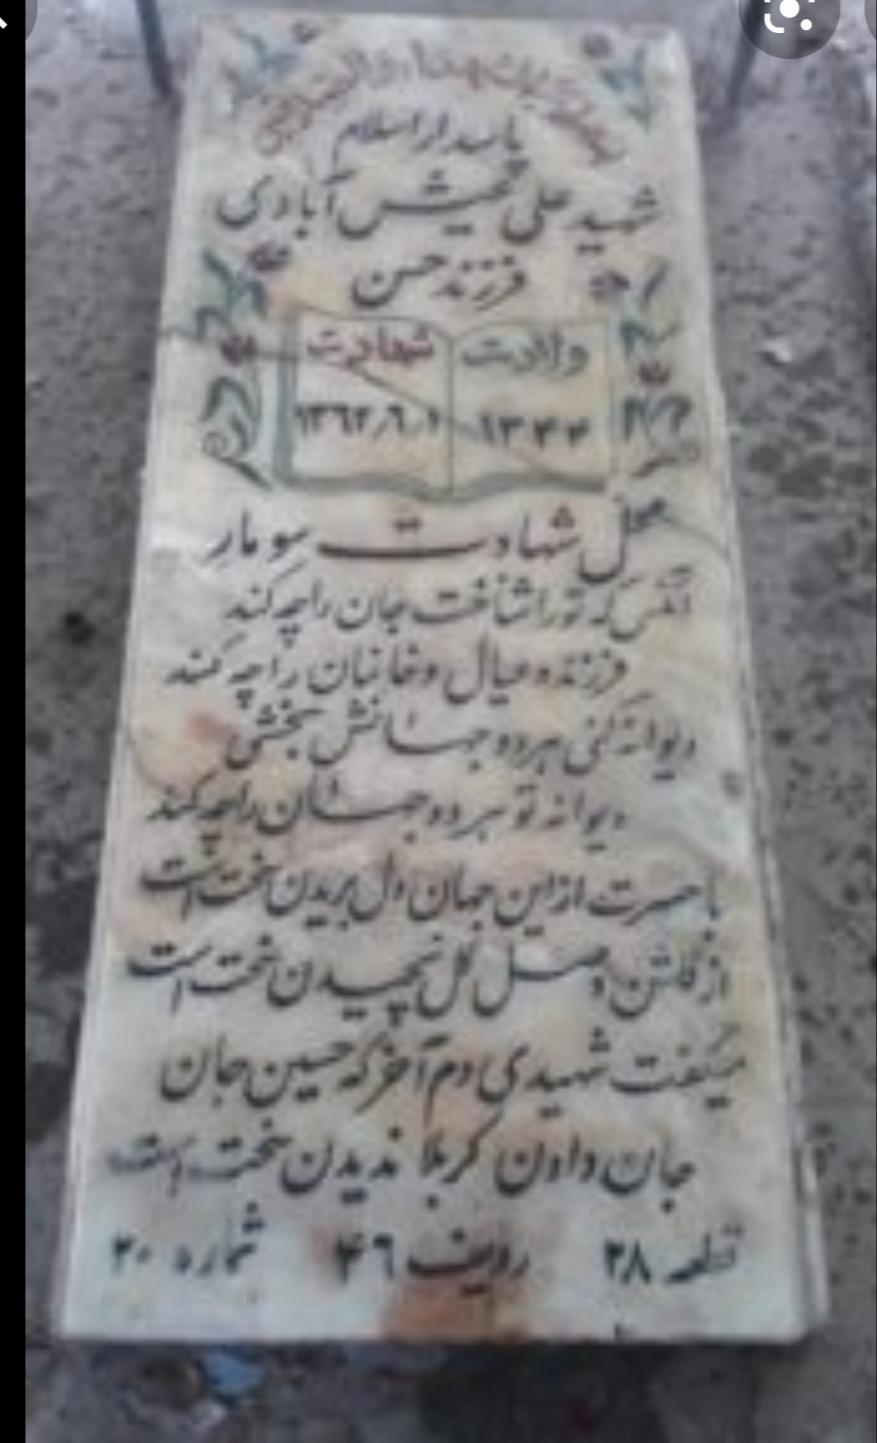 پاسدار اسلام
شهید علی عیش آبادی
فرزند حسن
ولادت شهادت
۱۳۴۴ ۱۳۶۲٫۶٫۱
محل شهادت سومار
آنکس که تو را شناخت جان را چه کند
فرزند و عیال و خانمان را چه کند
دیوانه کنی هر دو جهانش بخشی
دیوانه تو هر دو جهان را چه کند
با حسرت از این جهان دل بریدن سخت است
از گلشن وصل گل نچیدن سخت است
میگفت شهیدی دم آخر که حسین جان
جان دادن کربلا ندیدن سخت است
قطعه ۲۸ ردیف ۴۶ شماره ۲۰